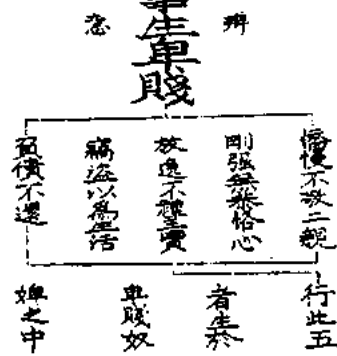 生卑賤
憍慢不敬二親
剛強無恭恪心
放逸不禮三寶
竊盜以為生活
負債不還
行此五
者生於
卑賤奴
婢之中